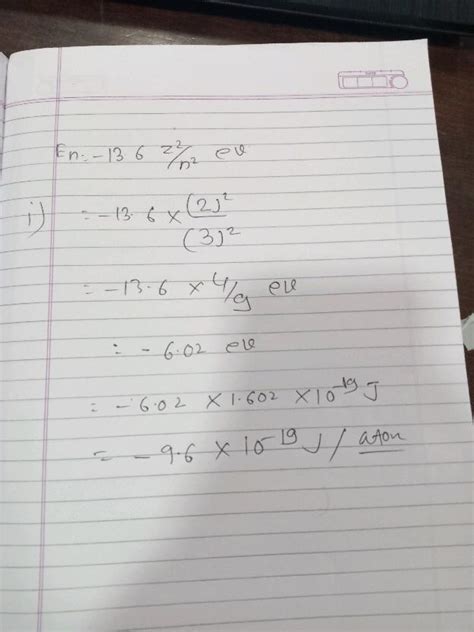 En = -13.6 z²/n² ev
i) = -13.6 × (2)²/(3)²
= -13.6 × 4/9 ev
= -6.02 ev
= -6.02 × 1.602 × 10⁻¹⁹ J
= -9.6 × 10⁻¹⁹ J / atom